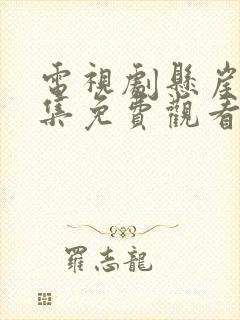 電視劇懸崖
集免費觀看
羅志龍